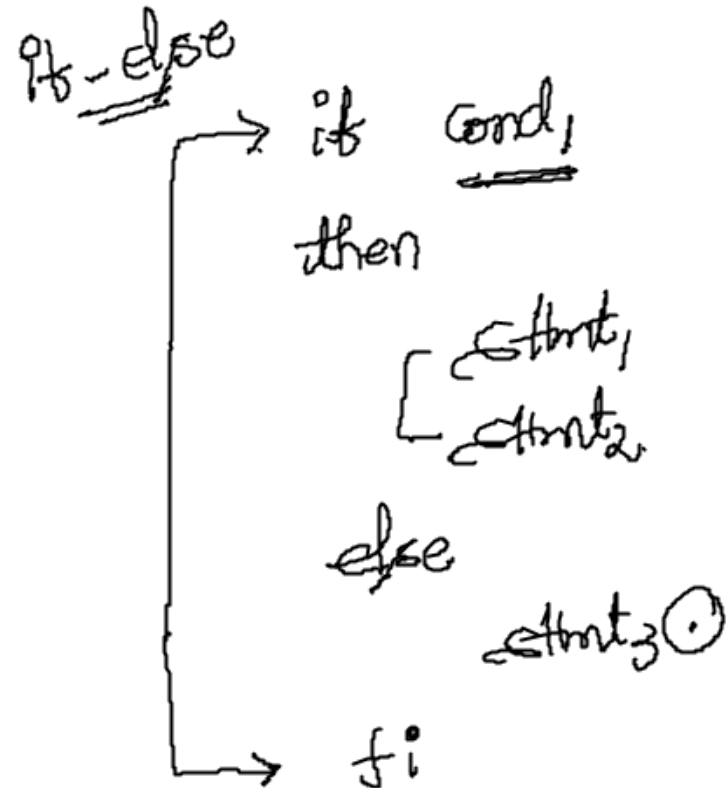 if-else
if cond1
then
stmt1
stmt2
else
stmt3
fi